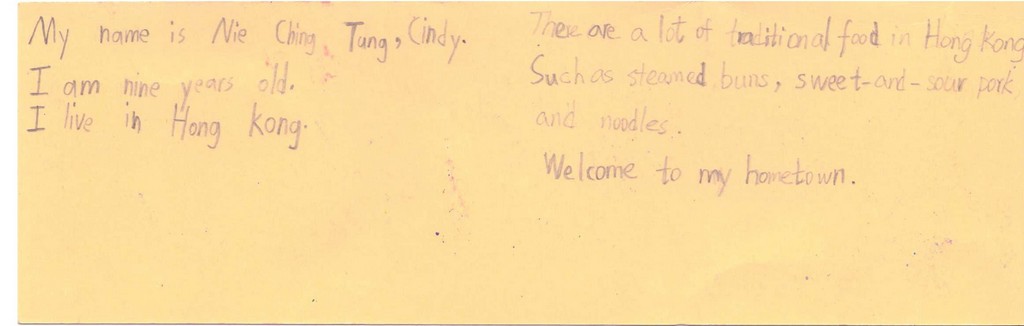 My name is Nie Ching Tung, Cindy.
I am nine years old.
I live in Hong Kong.
There are a lot of traditional food in Hong Kong
Such as steamed buns, sweet-and-sour pork
and noodles.
Welcome to my hometown.